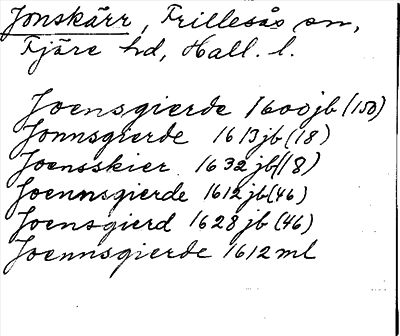 Jonskärr, Frillesås sn,
Fjäre hd, Hall. l.
Joensgierde 1600 jb (150)
Jonnsgierde 1613 jb (18)
Joensskier 1632 jb (18)
Joennsgierde 1612 jb (46)
Joensgierd 1628 jb (46)
Joennsgierde 1612 ml